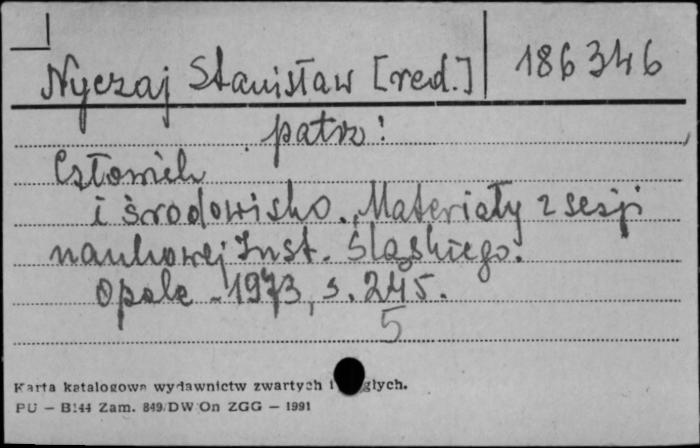 Nyczaj Stanisław [red.] 186346
patrz:
Człowiek
i środowisko. Materiały z sesji
naukowej Inst. Śląskiego.
Opole 1973, s. 245.
5
Karta katalogowa wydawnictw zwartych i
PU - B144 Zam. 849/DW/On ZGG - 1991